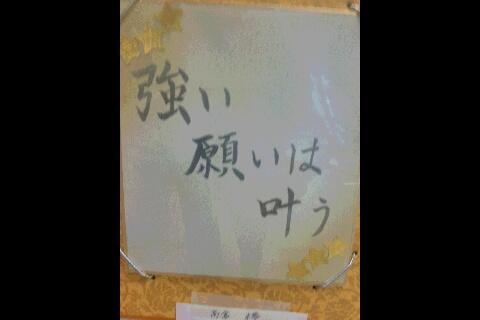 強い
願いは
叶う